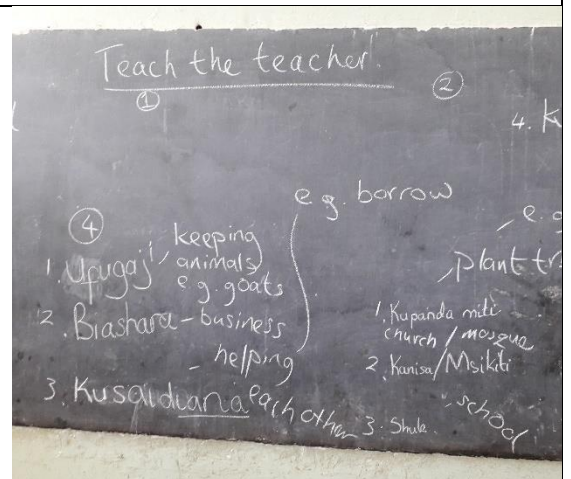 Teach the teacher!
①
②
4. K
e.g. borrow
④
1. Ufugaji, keeping
animals
e.g. goats
2. Biashara - business
- helping
3. Kusaidiana each other
- e.g
, plant tr
1. Kupanda miti
church / mosque
2. Kanisa/Msikiti
- school
3. Shule